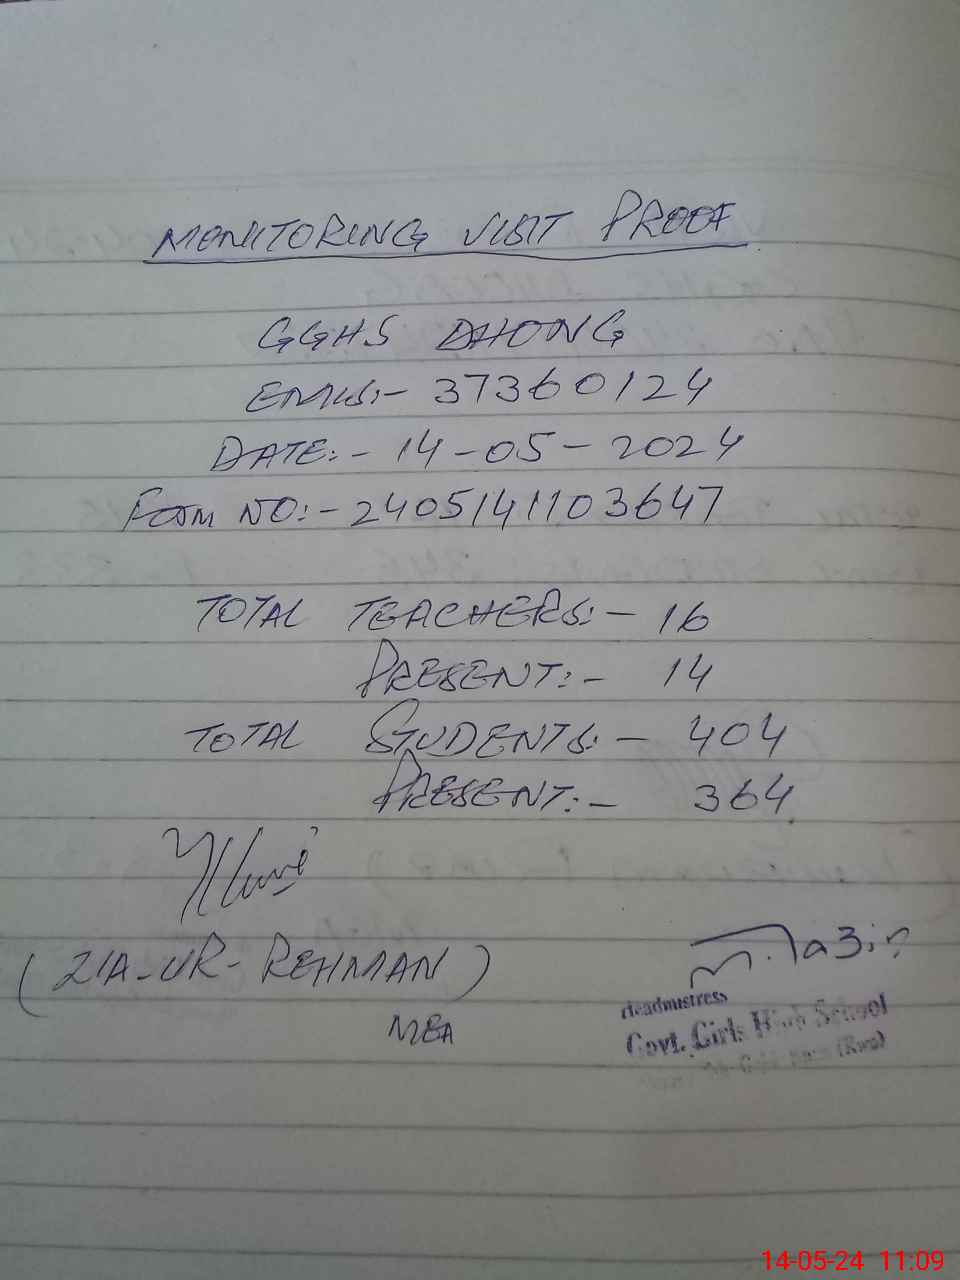 MONITORING VISIT PROOF
GGHS DHONG
EMIS:- 37360124
DATE:- 14-05-2024
FORM NO:- 2405141103647
TOTAL TEACHERS:- 16
PRESENT:- 14
TOTAL STUDENTS:- 404
PRESENT:- 364
(ZIA-UR-REHMAN)
MEA
Headmistress
Govt. Girls High School
(Rwp)
14-05-24 11:09